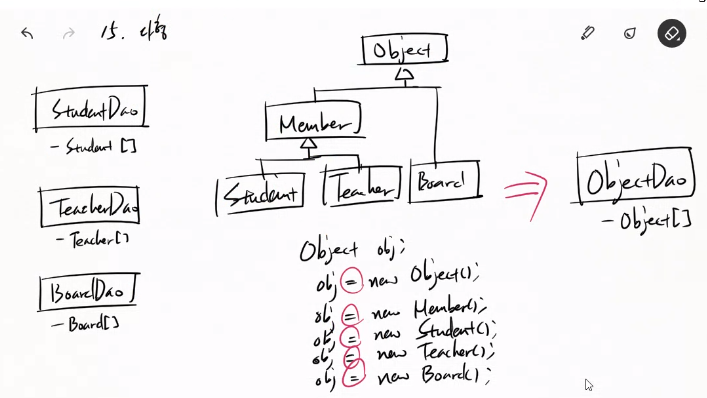 15. 다형
StudentDao
- Student []
TeacherDao
- Teacher[]
BoardDao
- Board[]
Object
Member
Student
Teacher
Board
Object obj;
obj = new Object();
obj = new Member();
obj = new Student();
obj = new Teacher();
obj = new Board();
ObjectDao
- Object[]